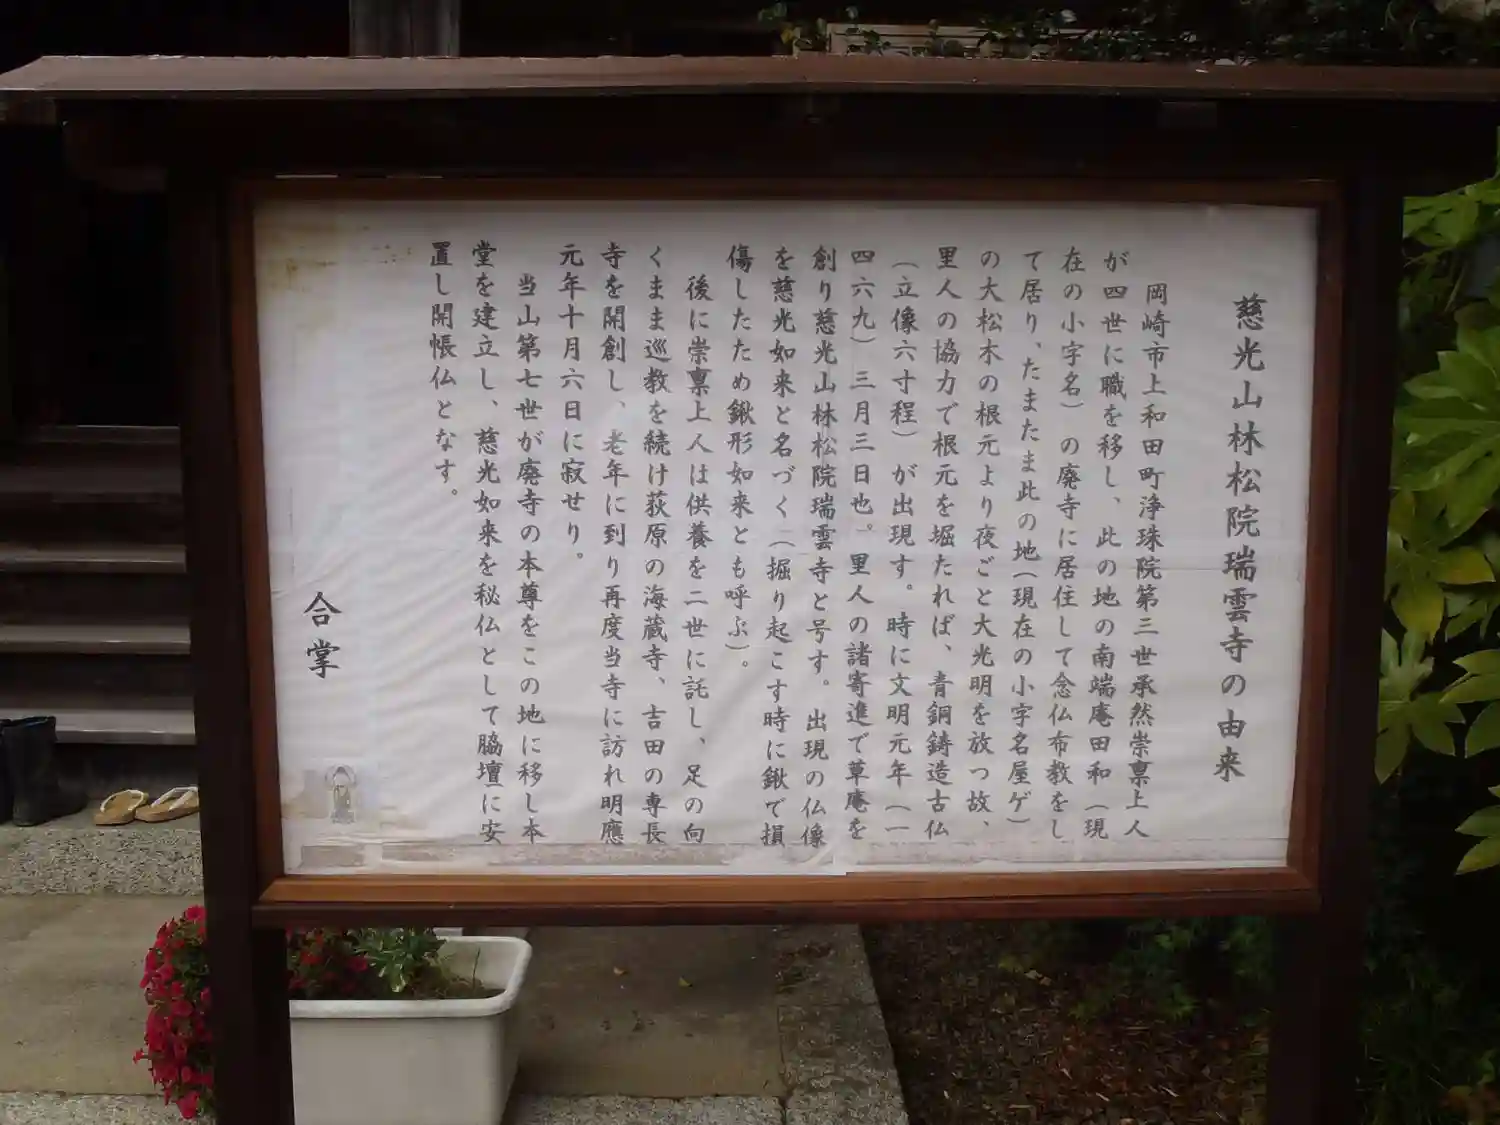 慈光山林松院瑞雲寺の由来
岡崎市上和田町浄珠院第三世承然崇禀上人
が四世に職を移し、此の地の南端庵田和（現
在の小字名）の廃寺に居住して念仏布教をし
て居り、たまたま此の地（現在の小字名屋ゲ）
の大松木の根元より夜ごと大光明を放つ故、
里人の協力で根元を堀たれば、青銅鋳造古仏
（立像六寸程）が出現す。時に文明元年（一
四六九）三月三日也。里人の諸寄進で草庵を
創り慈光山林松院瑞雲寺と号す。出現の仏像
を慈光如来と名づく（掘り起こす時に鍬で損
傷したため鍬形如来とも呼ぶ）。
後に崇禀上人は供養を二世に託し、足の向
くまま巡教を続け荻原の海蔵寺、吉田の専長
寺を開創し、老年に到り再度当寺に訪れ明應
元年十月六日に寂せり。
当山第七世が廃寺の本尊をこの地に移し本
堂を建立し、慈光如来を秘仏として脇壇に安
置し開帳仏となす。
合掌